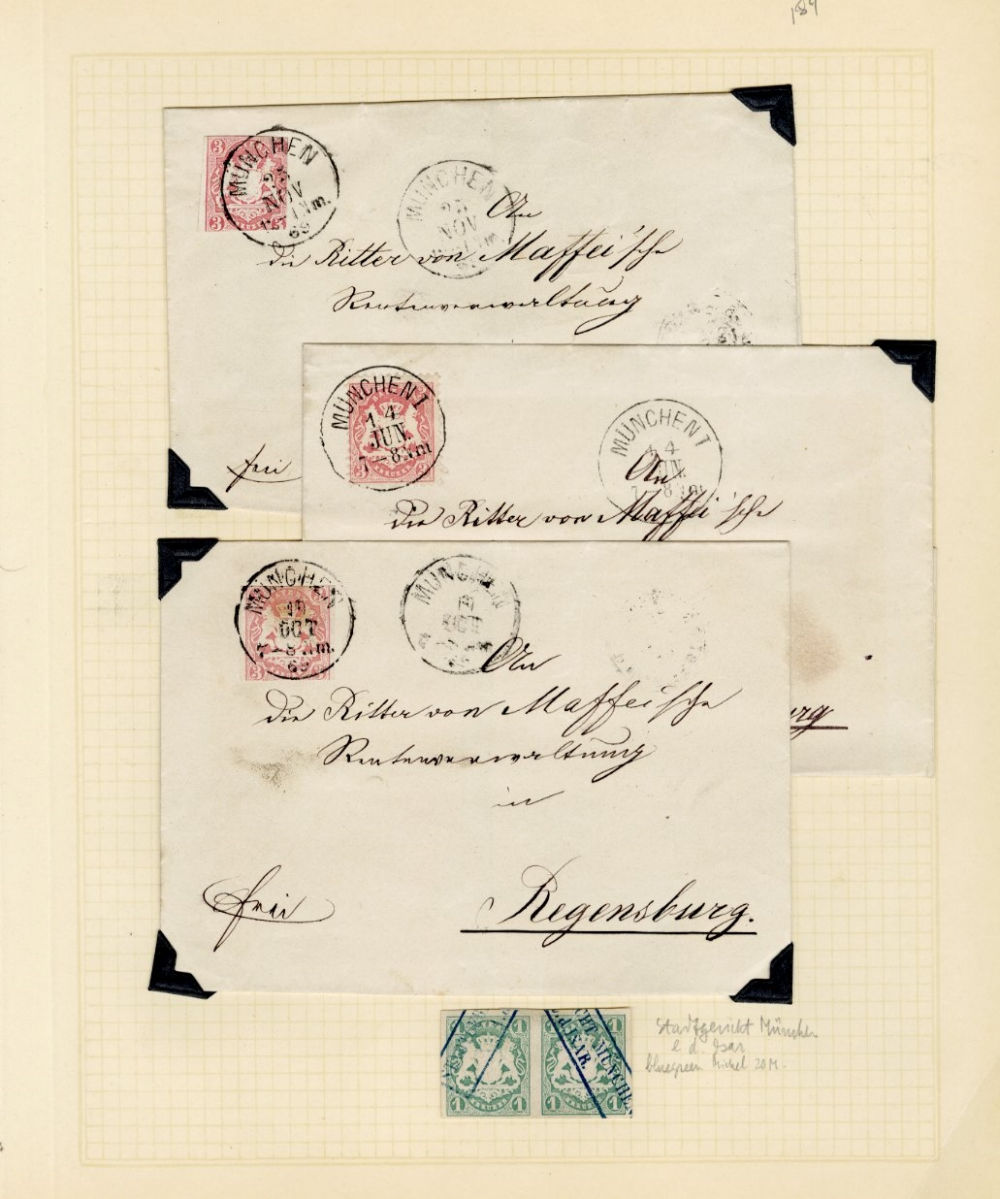 189
3
3
MÜNCHEN
25
NOV
69
MÜNCHEN
25
NOV
An
die Ritter von Maffei'sche
Rentenverwaltung
frei
MÜNCHEN I
14
JUN.
7-8 Nm
3
3
MÜNCHEN I
14
JUN.
7-8 Nm
An
die Ritter von Maffei'sche
rg
MÜNCHEN
19
OCT
7-8 Nm.
69
3
3
MÜNCHEN
19
OCT
69
An
die Ritter von Maffei'sche
Rentenverwaltung
in
frei
Regensburg.
1 1 1 1
CHT MÜNCHEN
D. ISAR.
1 KREUZER 1 1 KREUZER 1
Stadtgericht München
l. d. Isar
bluegreen Michel 20 M.